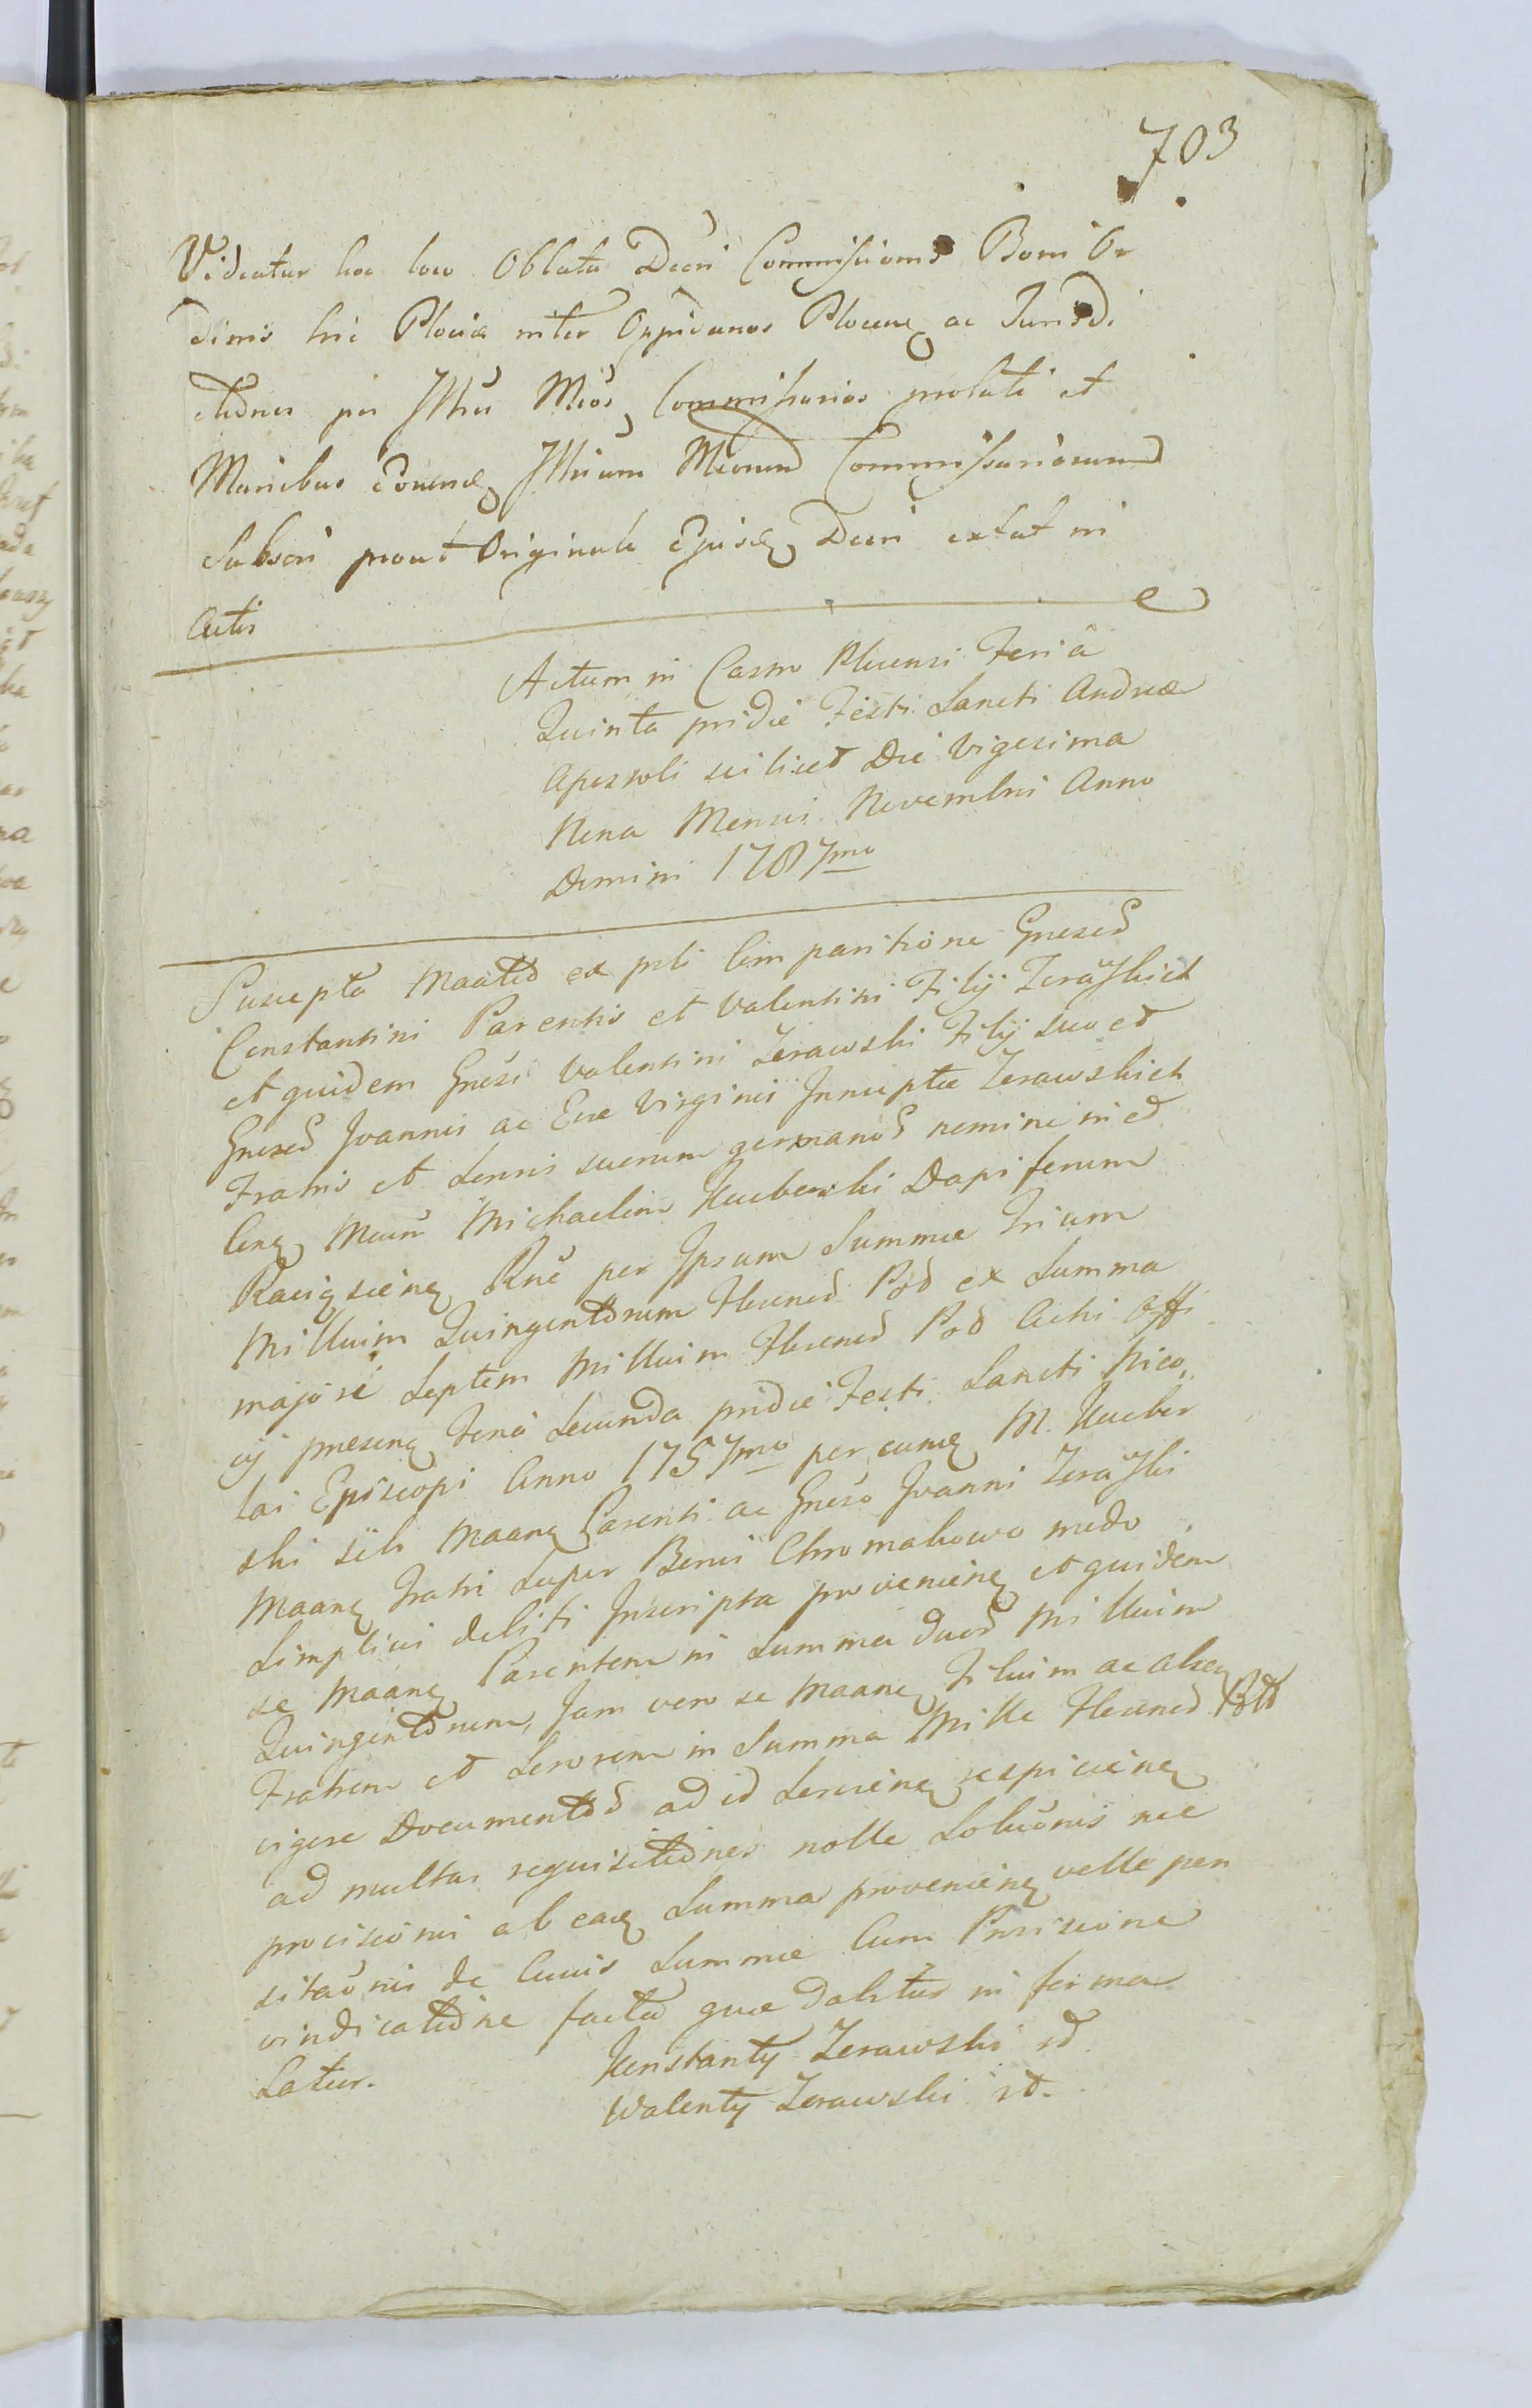 703
Videatur hoc loco Oblata Decri Commissionis Boni Or
dinis hic Plociæ inter Oppidanos Plocens ac Jurisdi
ctiones per Illres Mcos Commissarios prolati et
Manibus eorund Illrium Mcorum Commissariorum
Subscri prout Originale Ejusd Decri extat in
Actis
Actum in Castro Plocensi Feriâ
Quinta pridie Festi Sancti Andreæ
Apostoli scilicet Die Vigesima
Nona Mensis Novembris Anno
Domini 1787mo
Suscepta ex prti Comparitione Gnsord
Constantini Parentis et Valentini Filij Zerawskich
et quidem Gnosi Valentini Zerawski Filij suo et
Gnsord Joannis ac Evæ Virginis Innuptæ Zerawskich
Fratris et Sororis suorum germanor nomine in et
Conq Mcum Michaelem Kucborski Dapiferum
Raciąscieng Rne per Ipsum Summæ Trium
Millium Quingentorum Florenor Pol ex Summa
majore Septem Millium Florenor Pol Acti Offi
cij presenq Feria Secunda pridie Festi Sancti Nico
lai Episcopi Anno 1757mo per eumq M. Kucbor
ski sibi Maanq Parenti ac Gnoso Joanni Zerawski
Maanq Fratri super Bonis Chromakowo modo
Simplicis debiti Inscripta provenienq et quidem
se Maanq Parentem in Summa duor Millium
Quingentorum, Jam vero se Maanq Filium ac
Fratrem et Sororem in Summa Mille Florenor Pol
vigore Documentor ad id Servienq respicienq
ad multas requisitiones nolle Solucionis nec
provisionis ab eaq Summa provenienq velle pen
sitacionis de Cuius Summæ Cum Provisione
vindicatione facta quæ dabitur in forma
Latior.
Konstanty Zerawski
Walenty Zerawski